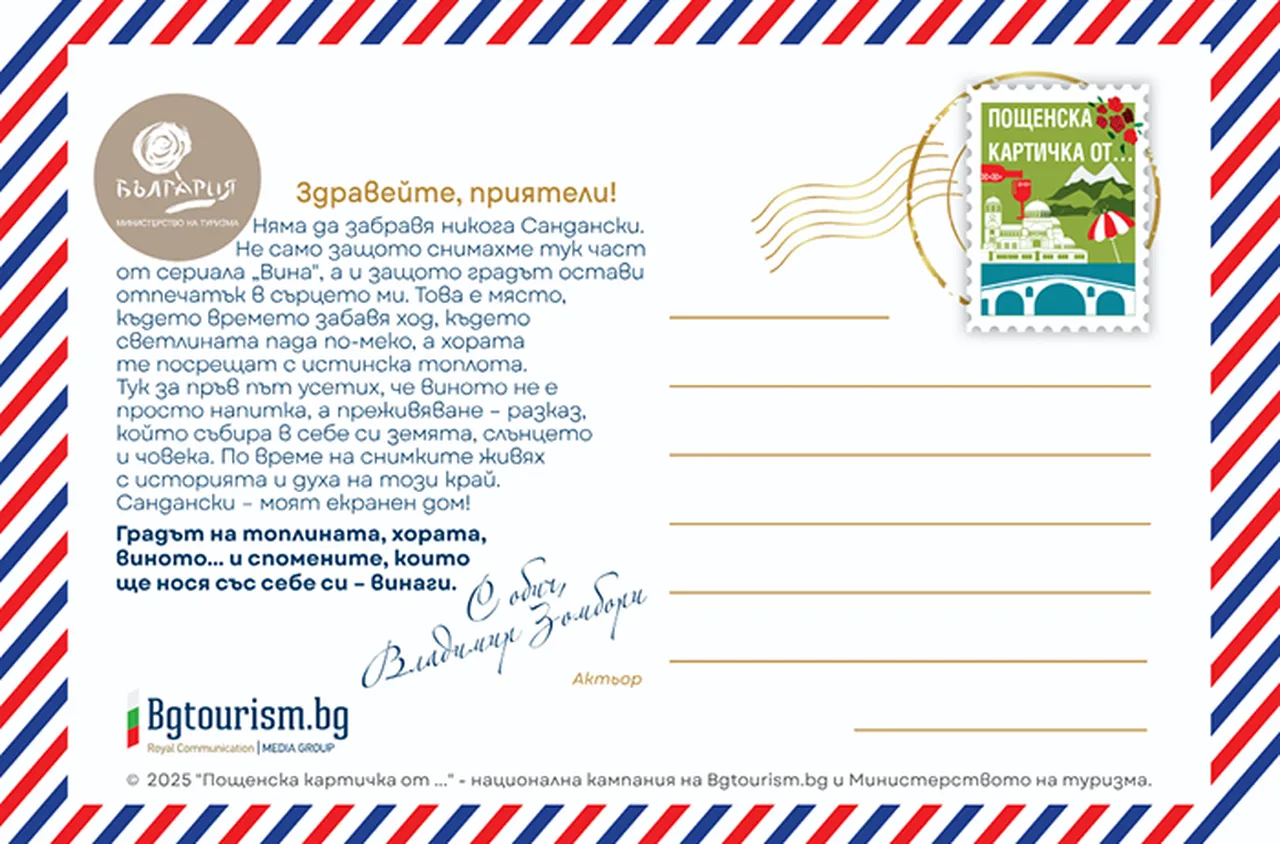 ПОЩЕНСКА
КАРТИЧКА ОТ...
БЪЛГАРИЯ
МИНИСТЕРСТВО НА ТУРИЗМА
Здравейте, приятели!
Няма да забравя никога Сандански.
Не само защото снимахме тук част
от сериала „Вина", а и защото градът остави
отпечатък в сърцето ми. Това е място,
където времето забавя ход, където
светлината пада по-меко, а хората
те посрещат с истинска топлота.
Тук за пръв път усетих, че виното не е
просто напитка, а преживяване – разказ,
който събира в себе си земята, слънцето
и човека. По време на снимките живях
с историята и духа на този край.
Сандански – моят екранен дом!
Градът на топлината, хората,
виното... и спомените, които
ще нося със себе си – винаги.
С обич,
Владимир Зомбори
Актьор
Bgtourism.bg
Royal Communication | MEDIA GROUP
© 2025 "Пощенска картичка от ..." - национална кампания на Bgtourism.bg и Министерството на туризма.